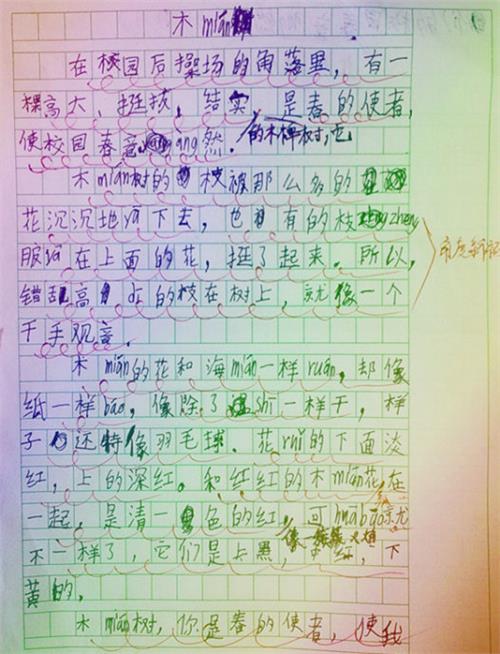 木mián
在校园后操场的角落里，有一
棵高大、挺拔、结实，是春的使者，
使校园春意 àng然. 的木棉树，它
木mián树的枝被那么多的
花沉沉地yā下去，也有的枝 zhēng
服yā在上面的花，挺了起来。所以，
错乱高 的枝在树上，就像一个
千手观音.
木mián的花和海mián一样ruǎn，却像
纸一样báo，像除了 shī一样干，样
子还特像羽毛球. 花ruǐ的下面淡
红，上的深红。和红红的木mián花在
一起，是清一色的红，可huābāo就
像一簇簇火焰
不一样了，它们是上黑，中红，下
黄的.
木mián树，你是春的使者，使我